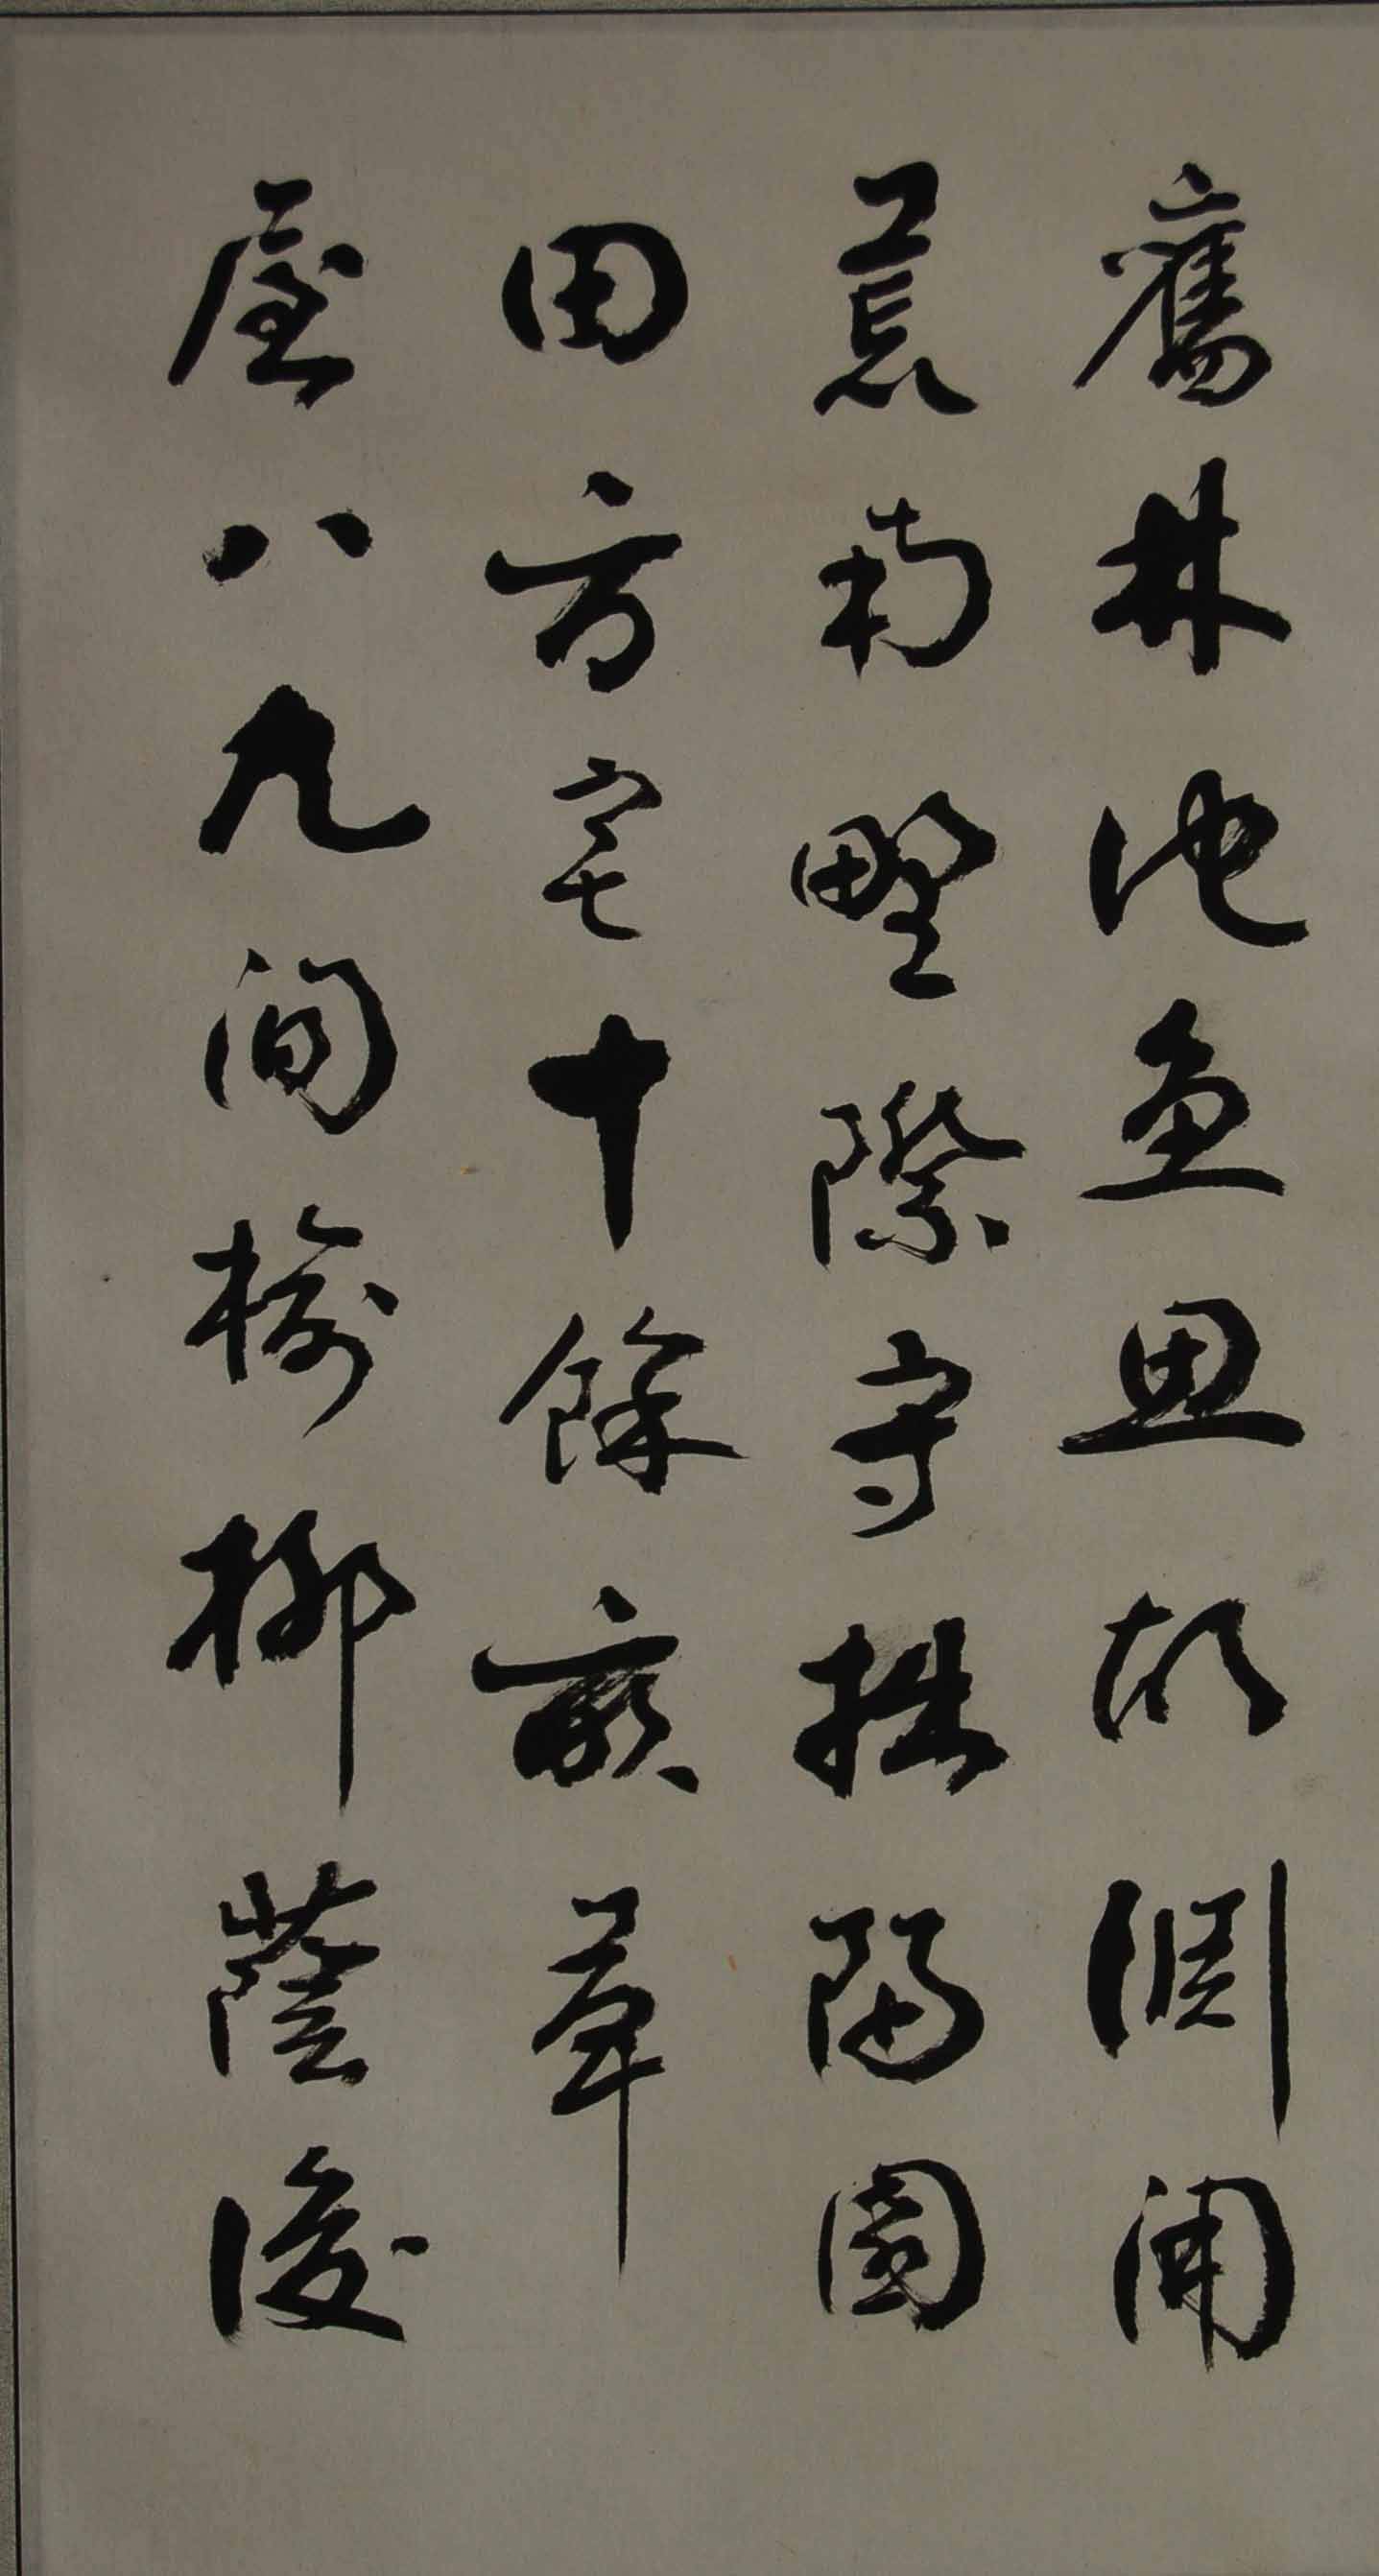 舊林池魚思故淵開
荒南野際守拙歸園
田方宅十餘畝草
屋八九間榆柳蔭後